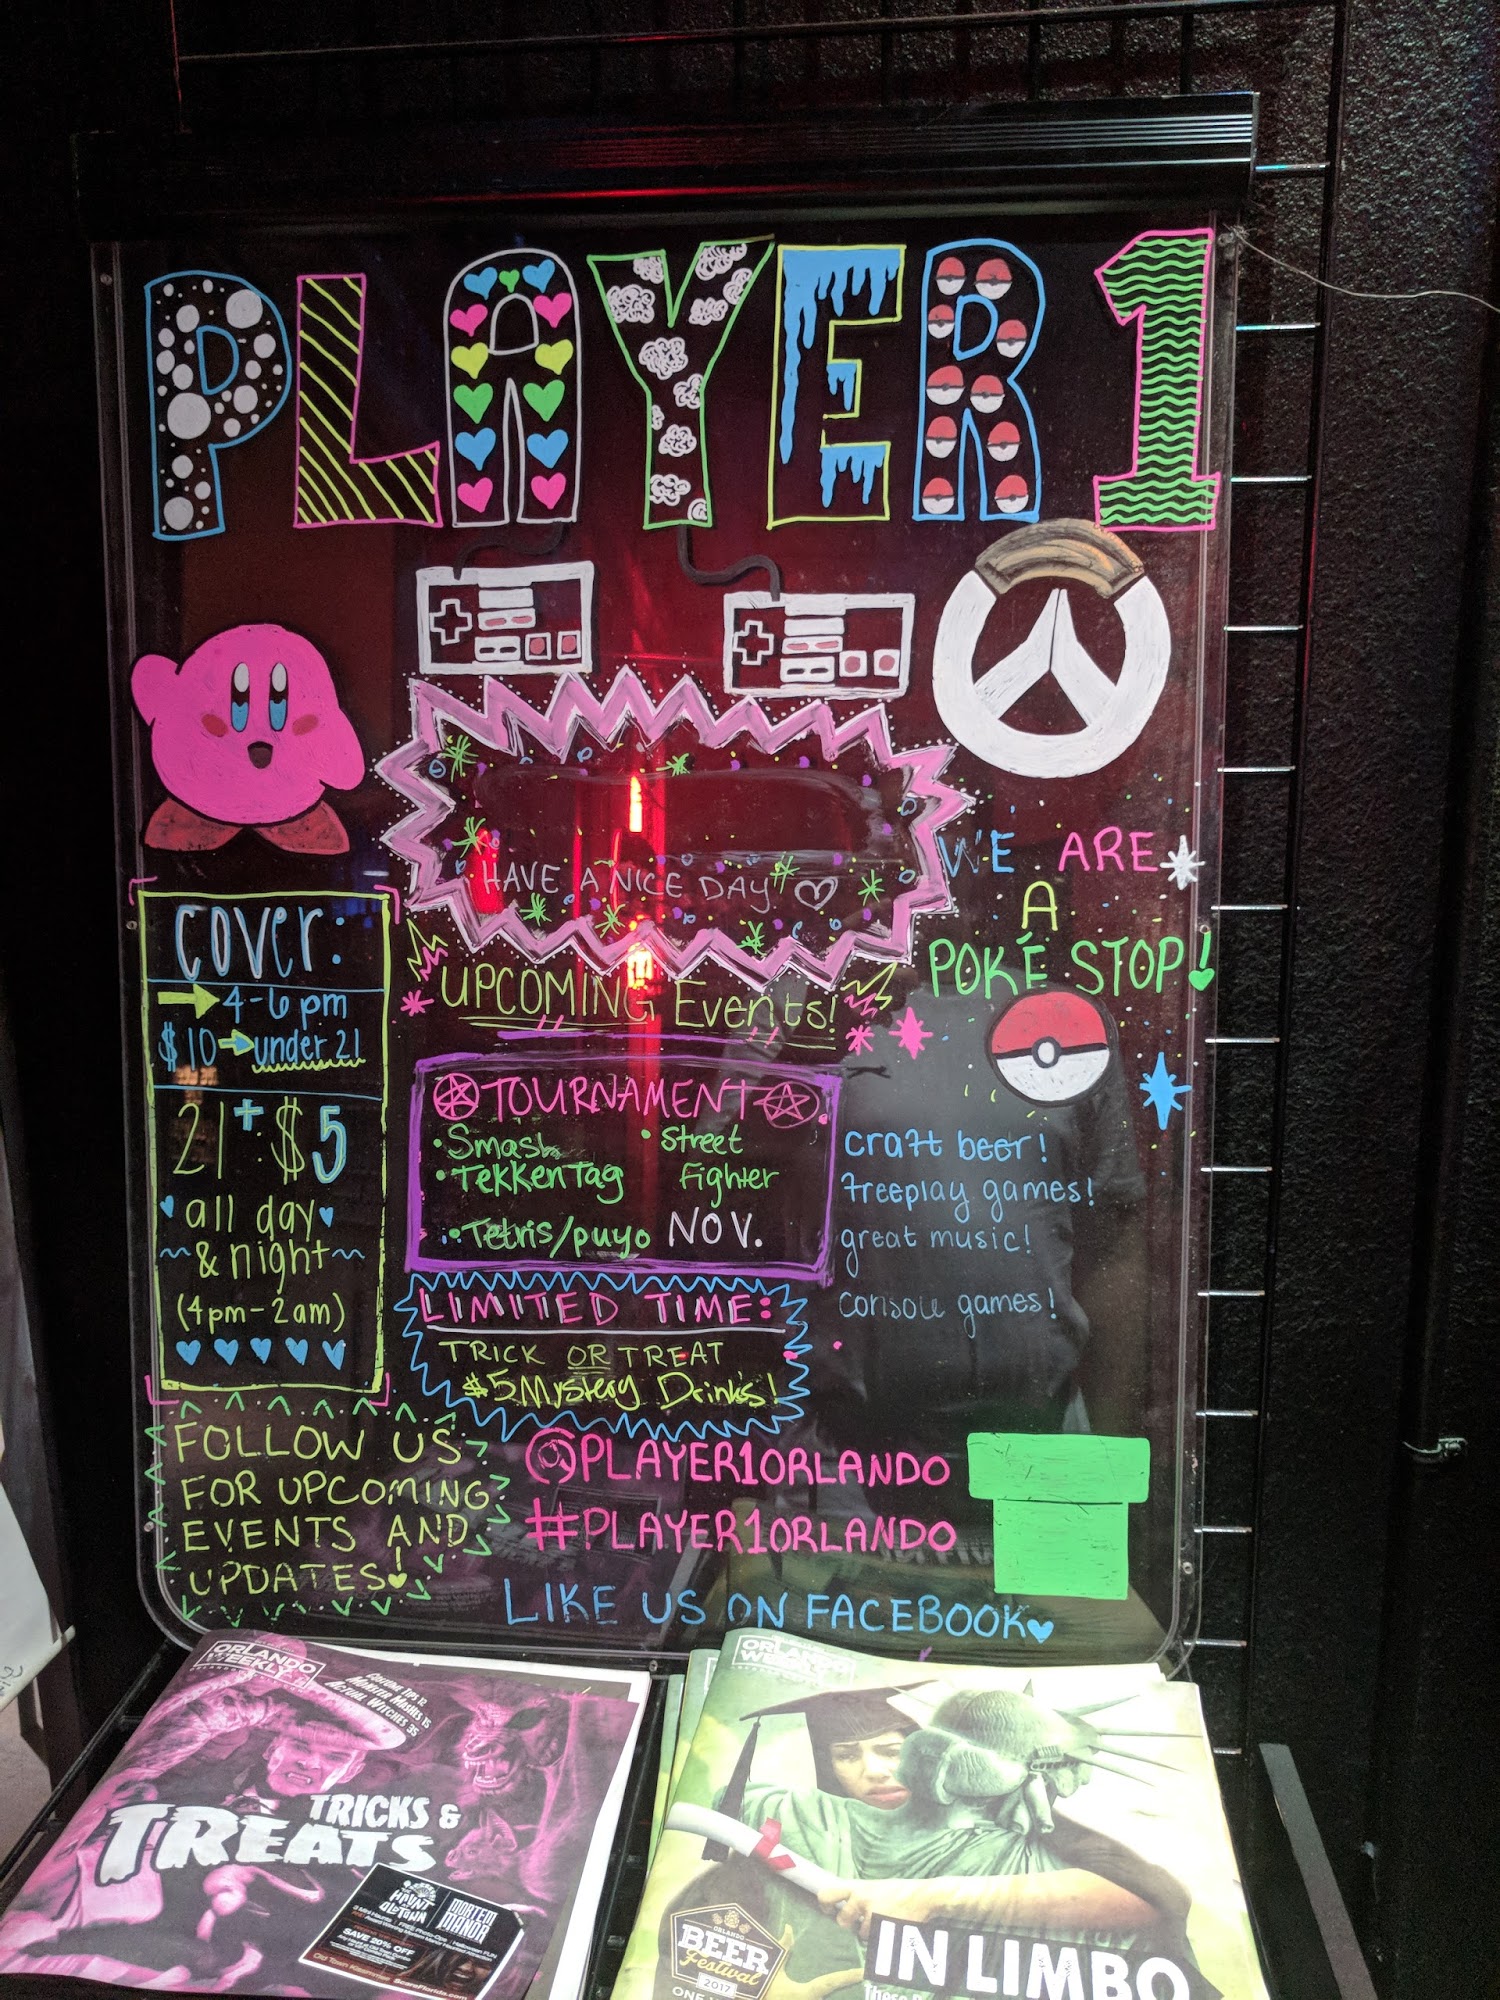 PLAYER 1
HAVE A NICE DAY
WE ARE
A
POKÉ STOP!
COVER:
4-6pm
$10 under 21
21+: $5
all day
& night
(4pm-2am)
UPCOMING Events!
TOURNAMENT
• Smash • Street
• Tekken Tag Fighter
• Tetris/puyo NOV.
craft beer!
freeplay games!
great music!
console games!
LIMITED TIME:
TRICK OR TREAT
$5 Mystery Drinks!
FOLLOW US
FOR UPCOMING
EVENTS AND
UPDATES!
@PLAYER1ORLANDO
#PLAYER1ORLANDO
LIKE US ON FACEBOOK
ORLANDO
WEEKLY
COSTUME TIPS 12
MONSTER MASHES 15
ACTUAL WITCHES 35
TRICKS &
TREATS
HAUNT
OLD TOWN
MORTEM
MANOR
SAVE 20% OFF
ORLANDO
WEEKLY
ORLANDO
BEER
Festival
2017
IN LIMBO